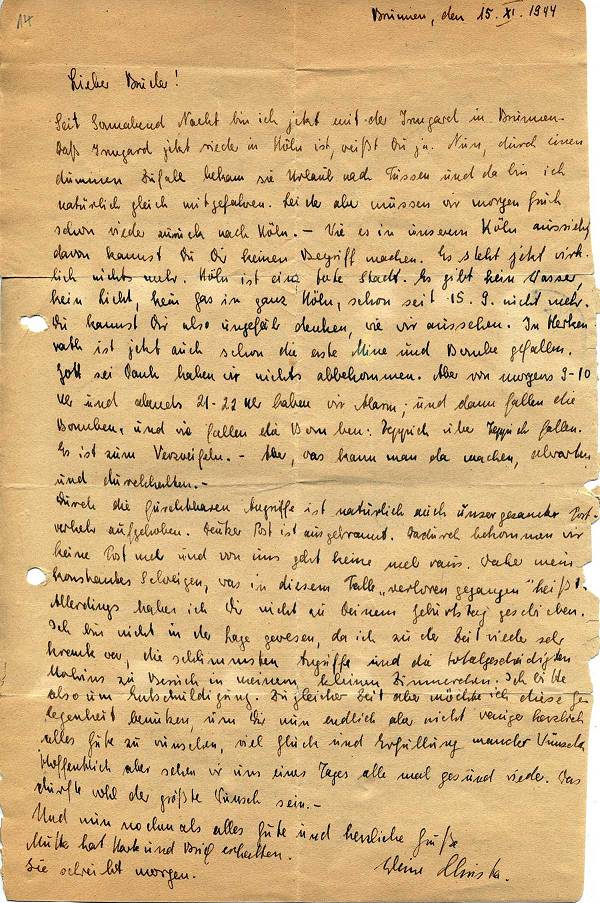 14
Brünnen, den 15. XI. 1944
Lieber Bruder!
Seit Sonnabend Nacht bin ich jetzt mit der Irmgard in Brünnen.
Daß Irmgard jetzt wieder in Köln ist, weißt Du ja. Nun, durch einen
dummen Zufall bekam sie Urlaub nach Füssen und da bin ich
natürlich gleich mitgefahren. Leider aber müssen wir morgen früh
schon wieder zurück nach Köln. – Wie es in unserem Köln aussieht,
davon kannst Du Dir keinen Begriff machen. Es steht jetzt wirk-
lich nichts mehr. Köln ist eine tote Stadt. Es gibt kein Wasser,
kein Licht, kein Gas in ganz Köln, schon seit 15. 9. nicht mehr.
Du kannst Dir also ungefähr denken, wie wir aussehen. In Herken-
rath ist jetzt auch schon die erste Mine und Bombe gefallen.
Gott sei Dank haben wir nichts abbekommen. Aber von morgens 9-10
Uhr und abends 21-22 Uhr haben wir Alarm; und dann fallen die
Bomben, und wie fallen die Bomben: Teppich über Teppich fallen.
Es ist zum Verzweifeln. – Aber, was kann man da machen, abwarten
und durchhalten. –
Durch die furchtbaren Angriffe ist natürlich auch unser gesamter Post-
verkehr aufgehoben. Deutzer Post ist ausgebrannt. Dadurch bekommen wir
keine Post mehr und von uns geht keine mehr raus. Daher mein
konstantes Schweigen, was in diesem Falle „verloren gegangen" heißt.
Allerdings habe ich Dir nicht zu Deinem Geburtstag geschrieben.
Ich bin nicht in der Lage gewesen, da ich zu der Zeit wieder sehr
krank war, die schlimmsten Angriffe und die totalgeschädigten
zu Besuch in meinem kleinen Zimmerchen. Ich bitte
also um Entschuldigung. Zu gleicher Zeit aber möchte ich diese Ge-
legenheit benutzen, um Dir nun endlich aber nicht weniger herzlich
alles Gute zu wünschen, viel Glück und Erfüllung mancher Wünsche,
hoffentlich aber sehen wir uns eines Tages alle mal gesund wieder. Das
dürfte wohl der größte Wunsch sein. –
Und nun nochmals alles Gute und herzliche Grüße
Mutter hat Karte und Brief erhalten.
Sie schreibt morgen.
Deine Christa.